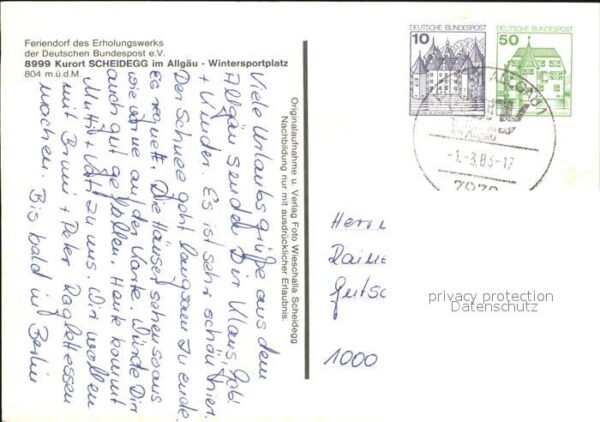 Feriendorf des Erholungswerks
der Deutschen Bundespost e.V.
8999 Kurort SCHEIDEGG im Allgäu - Wintersportplatz
804 m.ü.d.M.
Viele Urlaubsgrüße aus dem
Allgäu sendet Dir Klaus, Gabi
+ Kinder. Es ist sehr schön hier.
Der Schnee geht langsam zu ende.
Es taut. Die Häuser sehen so aus
wie vorne auf der Karte. Würde Dir
auch gut gefallen. Heute kommt
Mutti + Vati zu uns. Wir wollen
mit + Peter Raglettessen
machen. Bis bald in Berlin
Originalaufnahme u. Verlag Foto Wieschalla Scheidegg
Nachbildung nur mit ausdrücklicher Erlaubnis.
DEUTSCHE BUNDESPOST
10
DEUTSCHE BUNDESPOST
50
-1.-3.83-17
Herrn
Raine
1000
privacy protection
Datenschutz